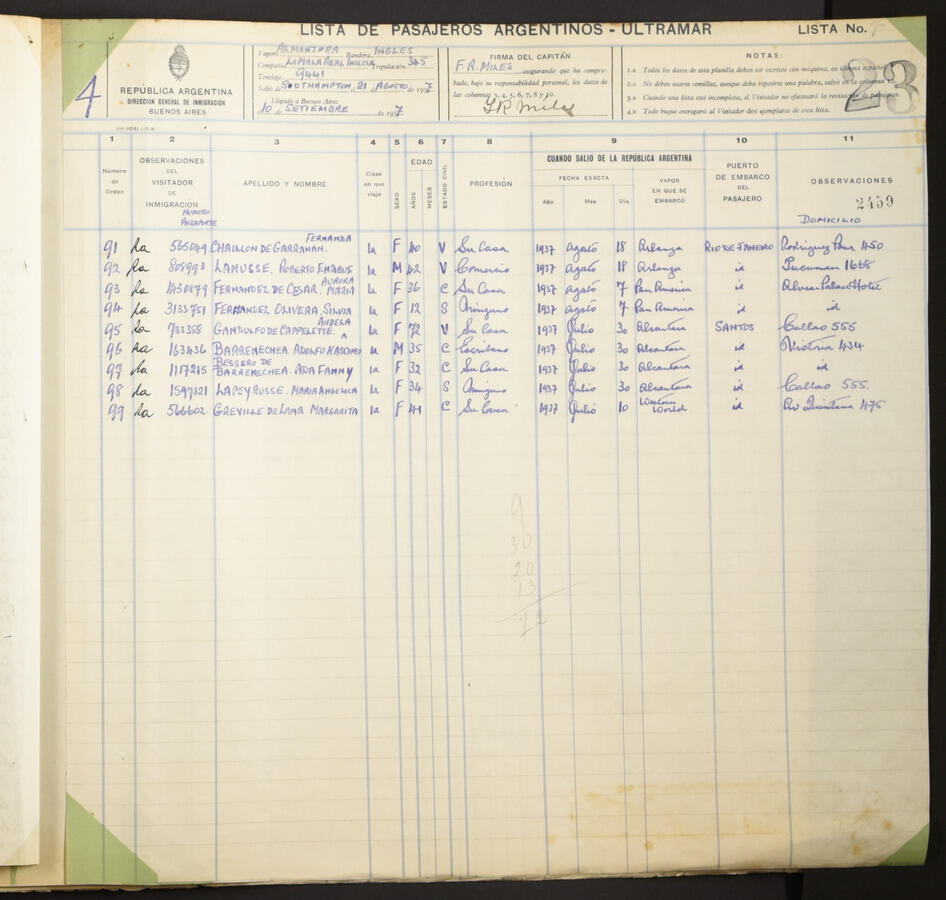 LISTA DE PASAJEROS ARGENTINOS - ULTRAMAR LISTA No. 4
4
REPÚBLICA ARGENTINA
DIRECCION GENERAL DE INMIGRACIÓN
BUENOS AIRES
Vapor ALMANZORA Bandera INGLES
Compañía LA MALA REAL INGLESA Tripulación 345
Tonelaje 9441
Salió de SOUTHAMPTON, 21 de AGOSTO de 1937
Llegado a Buenos Aires:
10 de SETIEMBRE de 1937
FIRMA DEL CAPITÁN
F.R. MILES asegurando que ha compro-
bado, bajo su responsabilidad personal, los datos de
las columnas 3, 4, 5, 6, 7, 8 y 10.
F.R. Miles
NOTAS:
1.a Todos los datos de esta planilla deben ser escritos con máquina, en idioma español
2.a No deben usarse comillas, aunque deba repetirse una palabra, salvo en la columna 10.
3.a Cuando una lista esté incompleta, el Visitador no efectuará la revisación de pasajeros.
4.a Todo buque entregará al Visitador dos ejemplares de esta lista.
23
1 2 3 4 5 6 7 8 9 10 11
Número de Orden
OBSERVACIONES DEL VISITADOR DE INMIGRACIÓN
NUMERO PASAPORTE
APELLIDO Y NOMBRE
Clase en que viaje
SEXO
EDAD
AÑOS
MESES
ESTADO CIVIL
PROFESIÓN
CUANDO SALIÓ DE LA REPÚBLICA ARGENTINA
FECHA EXACTA
Año Mes Día
VAPOR EN QUE SE EMBARCÓ
PUERTO DE EMBARCO DEL PASAJERO
OBSERVACIONES
2459
DOMICILIO
91 565049 CHAILLON DE GARRAHAN. FERNANDA 1a F 40 V Su Casa 1937 Agosto 18 Arlanza RIO DE JANEIRO Rodriguez Pena 450
92 808993 LANUSSE. ROBERTO ENRIQUE 1a M 42 V Comercio 1937 Agosto 18 Arlanza id Tucuman 1668
93 1430879 FERNANDEZ DE CESAR. AURORA MARIA 1a F 36 C Su Casa 1937 Agosto 7 Pan America id Alvear Palace Hotel
94 3133751 FERNANDEZ OLIVERA. SILVIA 1a F 12 S Ninguno 1937 Agosto 7 Pan America id id
95 733358 GANDULFO DE CAPPELETTE. ANGELA 1a F 72 V Su Casa 1937 Julio 30 Alcantara SANTOS Callao 555
96 163436 BARRENECHEA. ADOLFO NARCISMO 1a M 35 C Escribano 1937 Julio 30 Alcantara id Victoria 434
97 1117215 BESSERO DE BARRENECHEA. ADA FANNY 1a F 32 C Su Casa 1937 Julio 30 Alcantara id id
98 1597121 LAPEYRUSSE. MARIA ANGELICA 1a F 34 S Ninguno 1937 Julio 30 Alcantara id Callao 555.
99 566602 GREVILLE DE LAMB. MARGARITA 1a F 41 C Su Casa 1937 Julio 10 Western World id Av Quintana 475
9
30
20
13
72